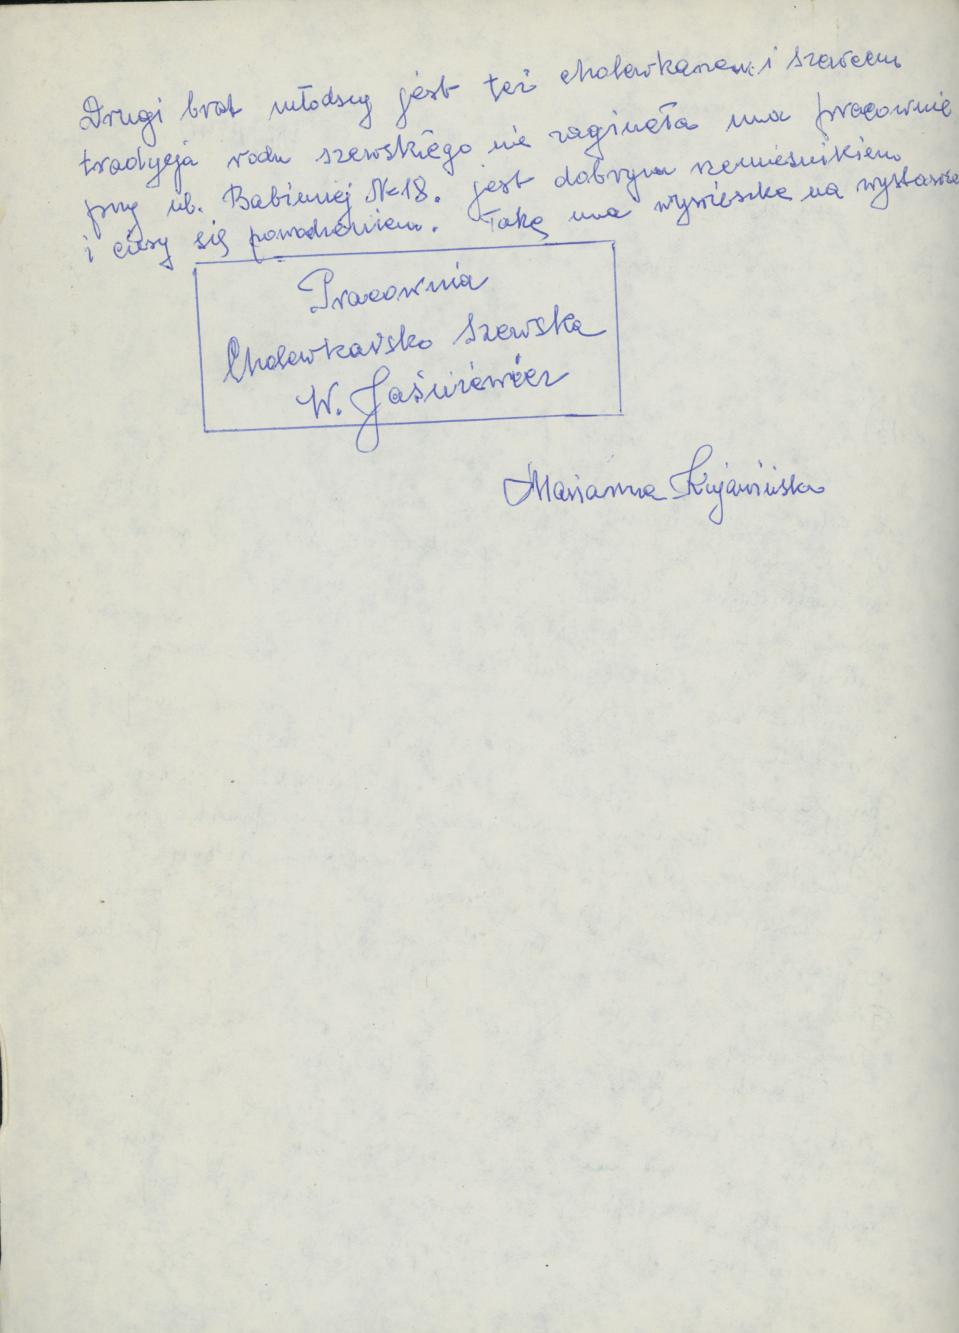 Drugi brat młodszy jest też cholewkarzem i szewcem
tradycja rodu szewskiego nie zaginęła ma pracownię
przy ul. Babinniej № 18. jest dobrym rzemieśnikiem
i cieszy się powodzeniem. Taką ma wywieszkę na wystawie
Pracownia
Cholewkarsko Szewska
W. Jaśniewicz
Marianna Kujawińska